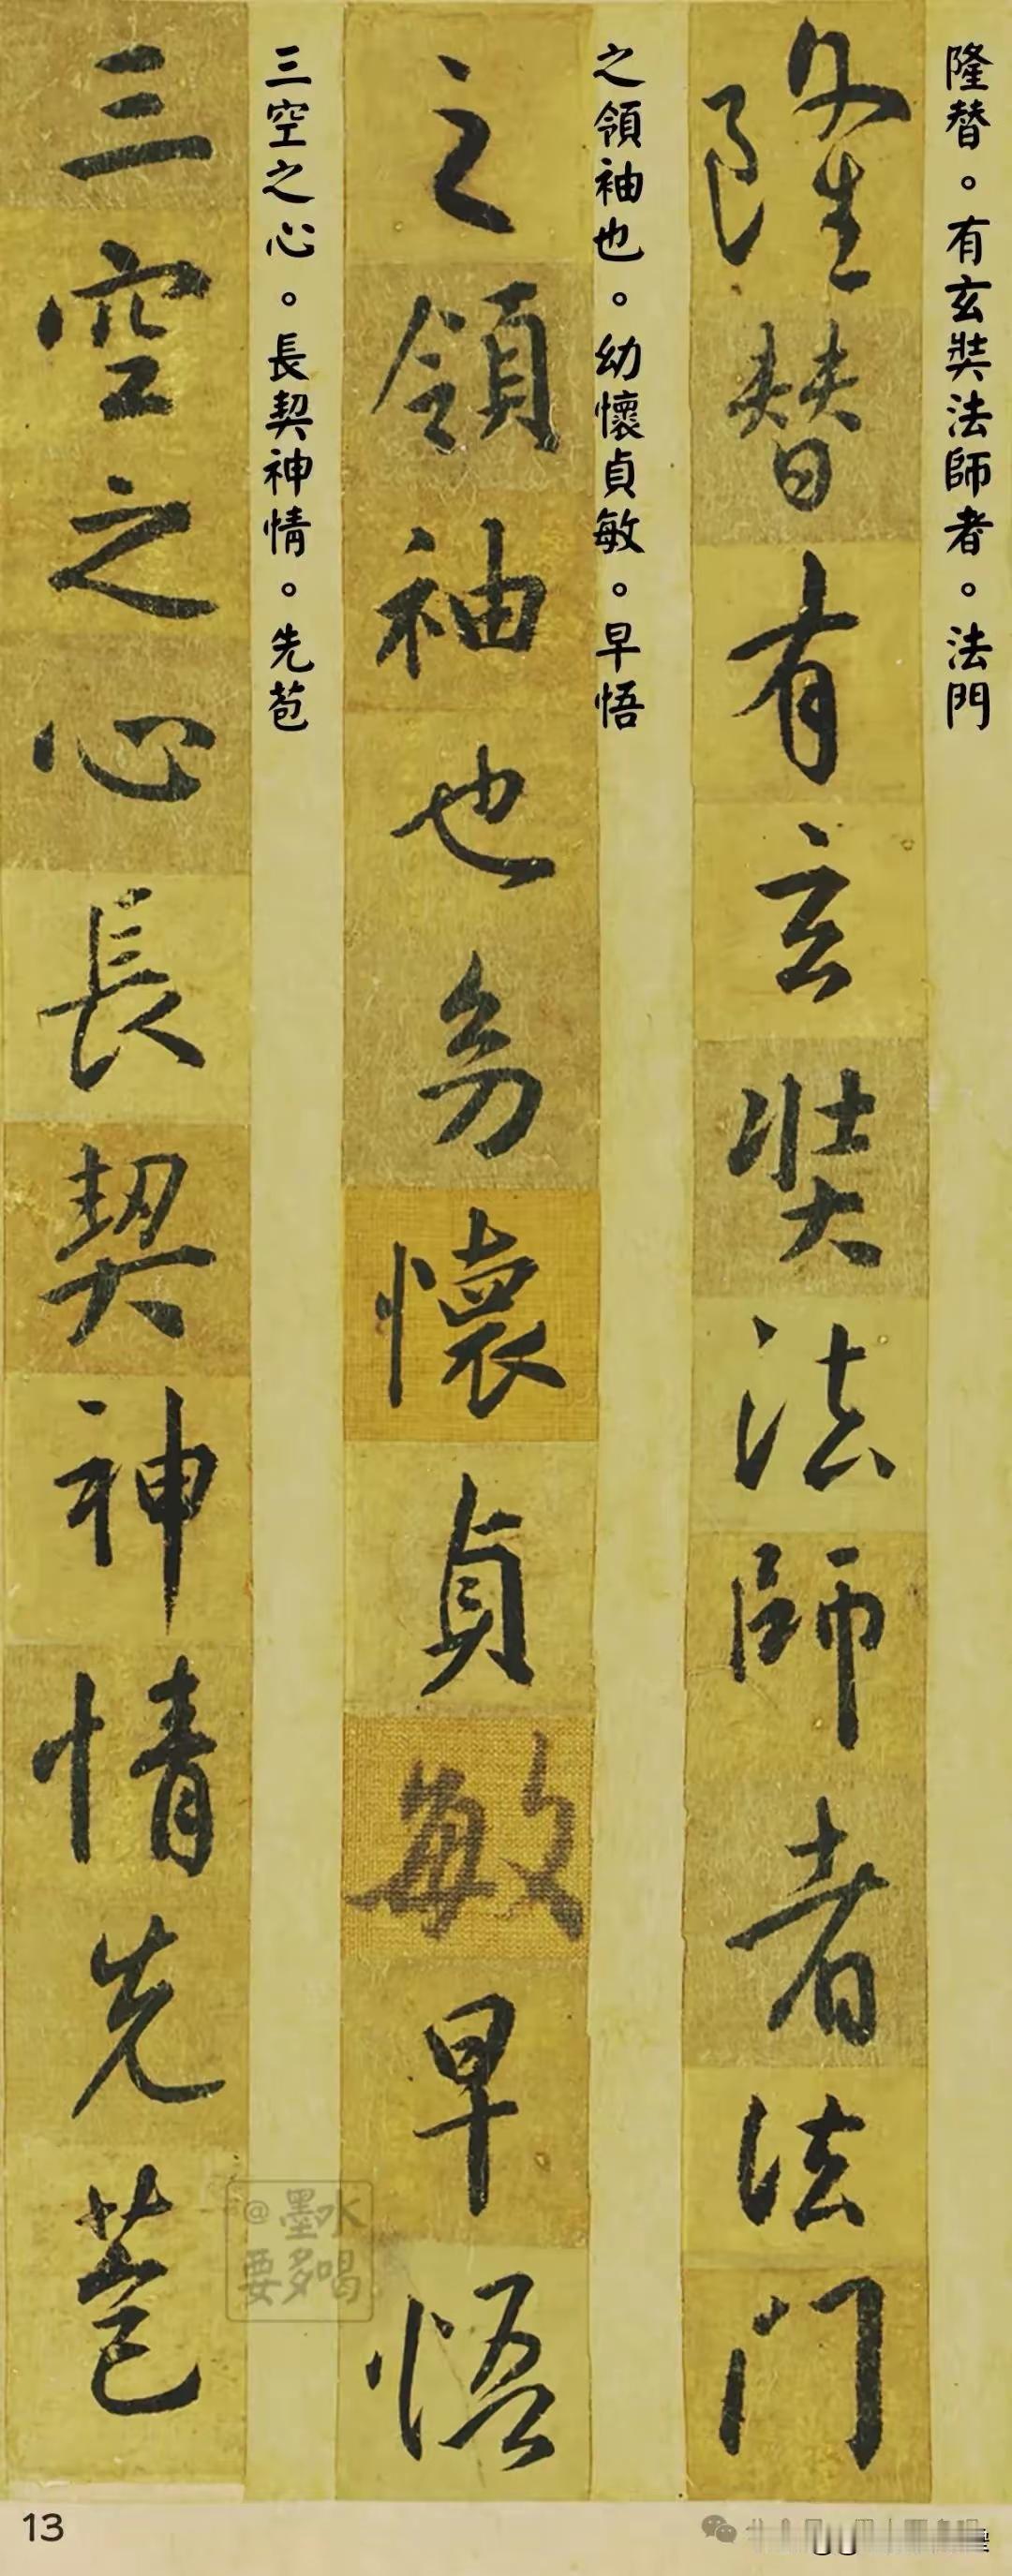 隆替。有玄奘法師者。法門
隆替有玄奘法師者法門
之領袖也。幼懷貞敏。早悟
之領袖也幼懷貞敏早悟
三空之心。長契神情。先苞
三空之心長契神情先苞
@墨水
要多喝
13